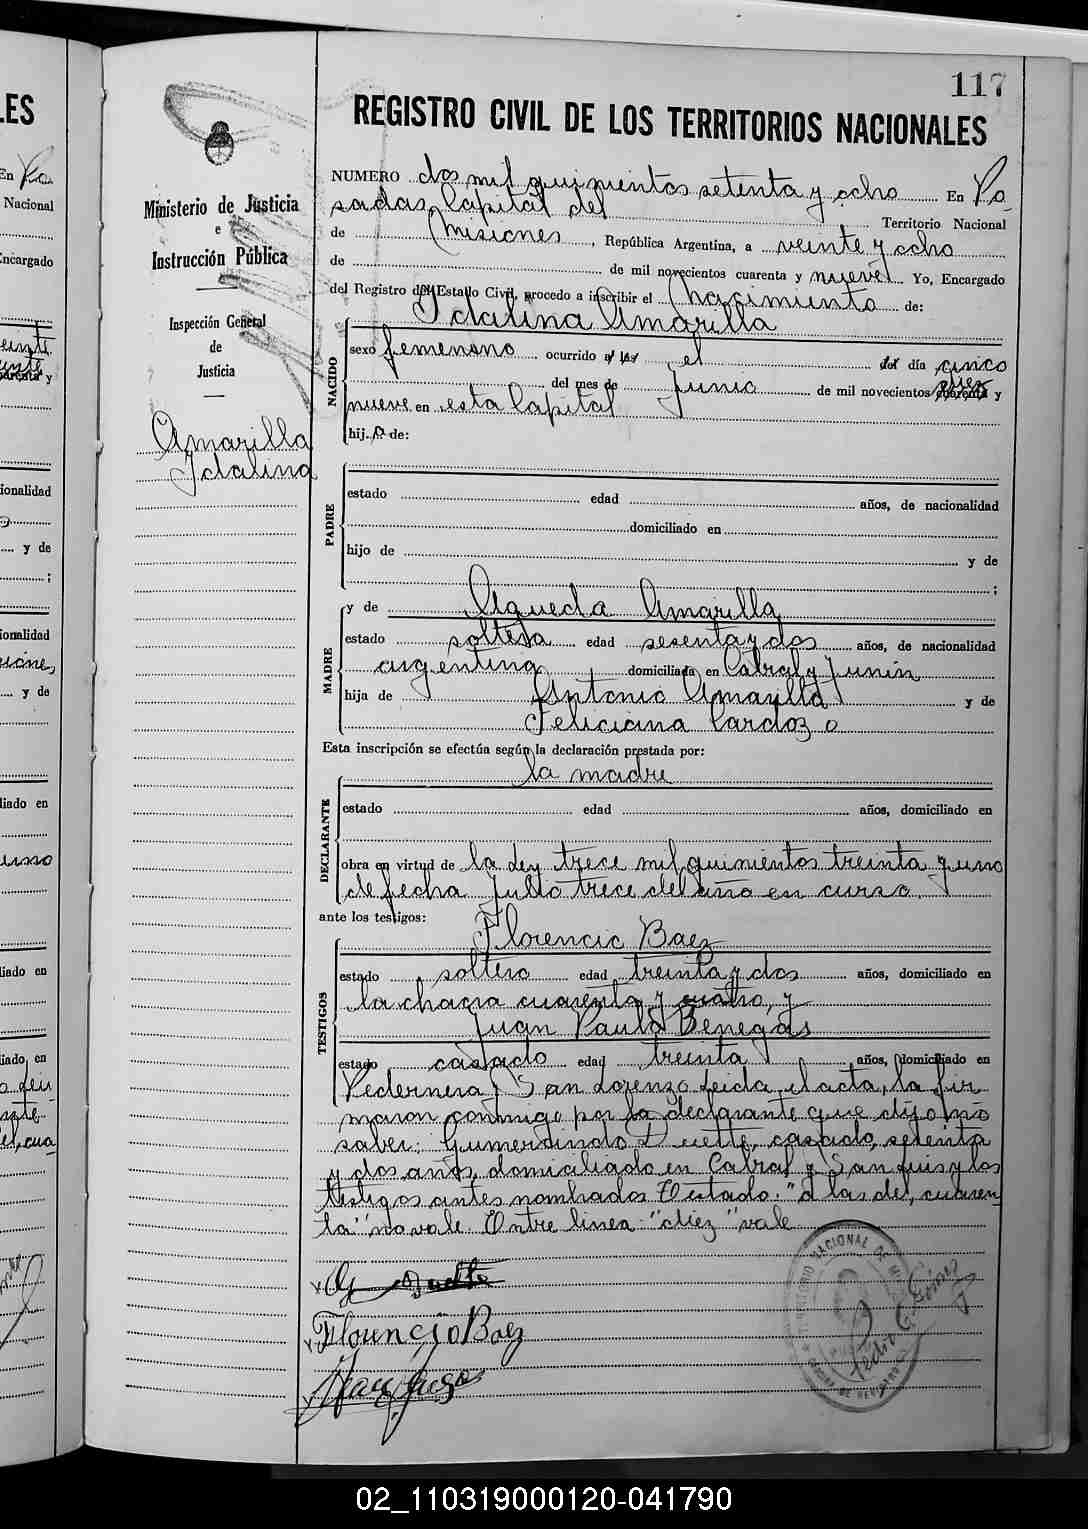 117
REGISTRO CIVIL DE LOS TERRITORIOS NACIONALES
Ministerio de Justicia
e
Instrucción Pública
Inspección General
de
Justicia
Amarilla
Idalina
NUMERO dos mil quinientos setenta y ocho En Po-
sadas Capital del Territorio Nacional
de Misiones, República Argentina, a veinte y ocho
de de mil novecientos cuarenta y nueve Yo, Encargado
del Registro del Estado Civil, procedo a inscribir el nacimiento de:
Idalina Amarilla
NACIDO
sexo femenino ocurrido a las el del día cinco
del mes de Junio de mil novecientos cuarenta y
diez
nueve en esta Capital
hija de:
PADRE
estado edad años, de nacionalidad
domiciliado en
hijo de y de
;
MADRE
y de Agueda Amarilla
estado soltera edad sesenta y dos años, de nacionalidad
argentina domiciliada en Cabral y Junín
hija de Antonio Amarilla y de
Feliciana Cardozo
Esta inscripción se efectúa según la declaración prestada por:
la madre
DECLARANTE
estado edad años, domiciliado en
obra en virtud de la ley trece mil quinientos treinta y uno
de fecha Julio trece del año en curso
ante los testigos:
TESTIGOS
Florencio Baez
estado soltero edad treinta y dos años, domiciliado en
la chacra cuarenta y cuatro, y
Juan Paulo Benegas
estado casado edad treinta años, domiciliado en
Pedernera y San Lorenzo leida el acta, la fir-
maron conmigo por la declarante que dijo no
saber: Gumercindo Duette, casado, setenta
y dos años, domiciliado en Cabral y San Luis y los
testigos antes nombrados Testado: "a las del, cuaren-
ta" no vale. Entre linea "diez" vale
G Duette
Florencio Baez
TERRITORIO NACIONAL DE
Pedro G. Gimenez
02_110319000120-041790
LES
En
Nacional
Encargado
y
ionalidad
y de
;
ionalidad
y de
iliado en
iliado en
iliado, en